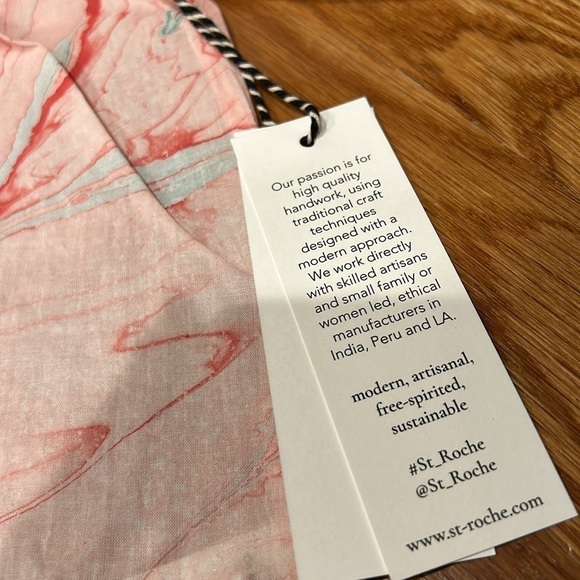 Our passion is for
high quality
handwork, using
traditional craft
techniques
designed with a
modern approach.
We work directly
with skilled artisans
and small family or
women led, ethical
manufacturers in
India, Peru and LA.
modern, artisanal,
free-spirited,
sustainable
#St_Roche
@St_Roche
www.st-roche.com